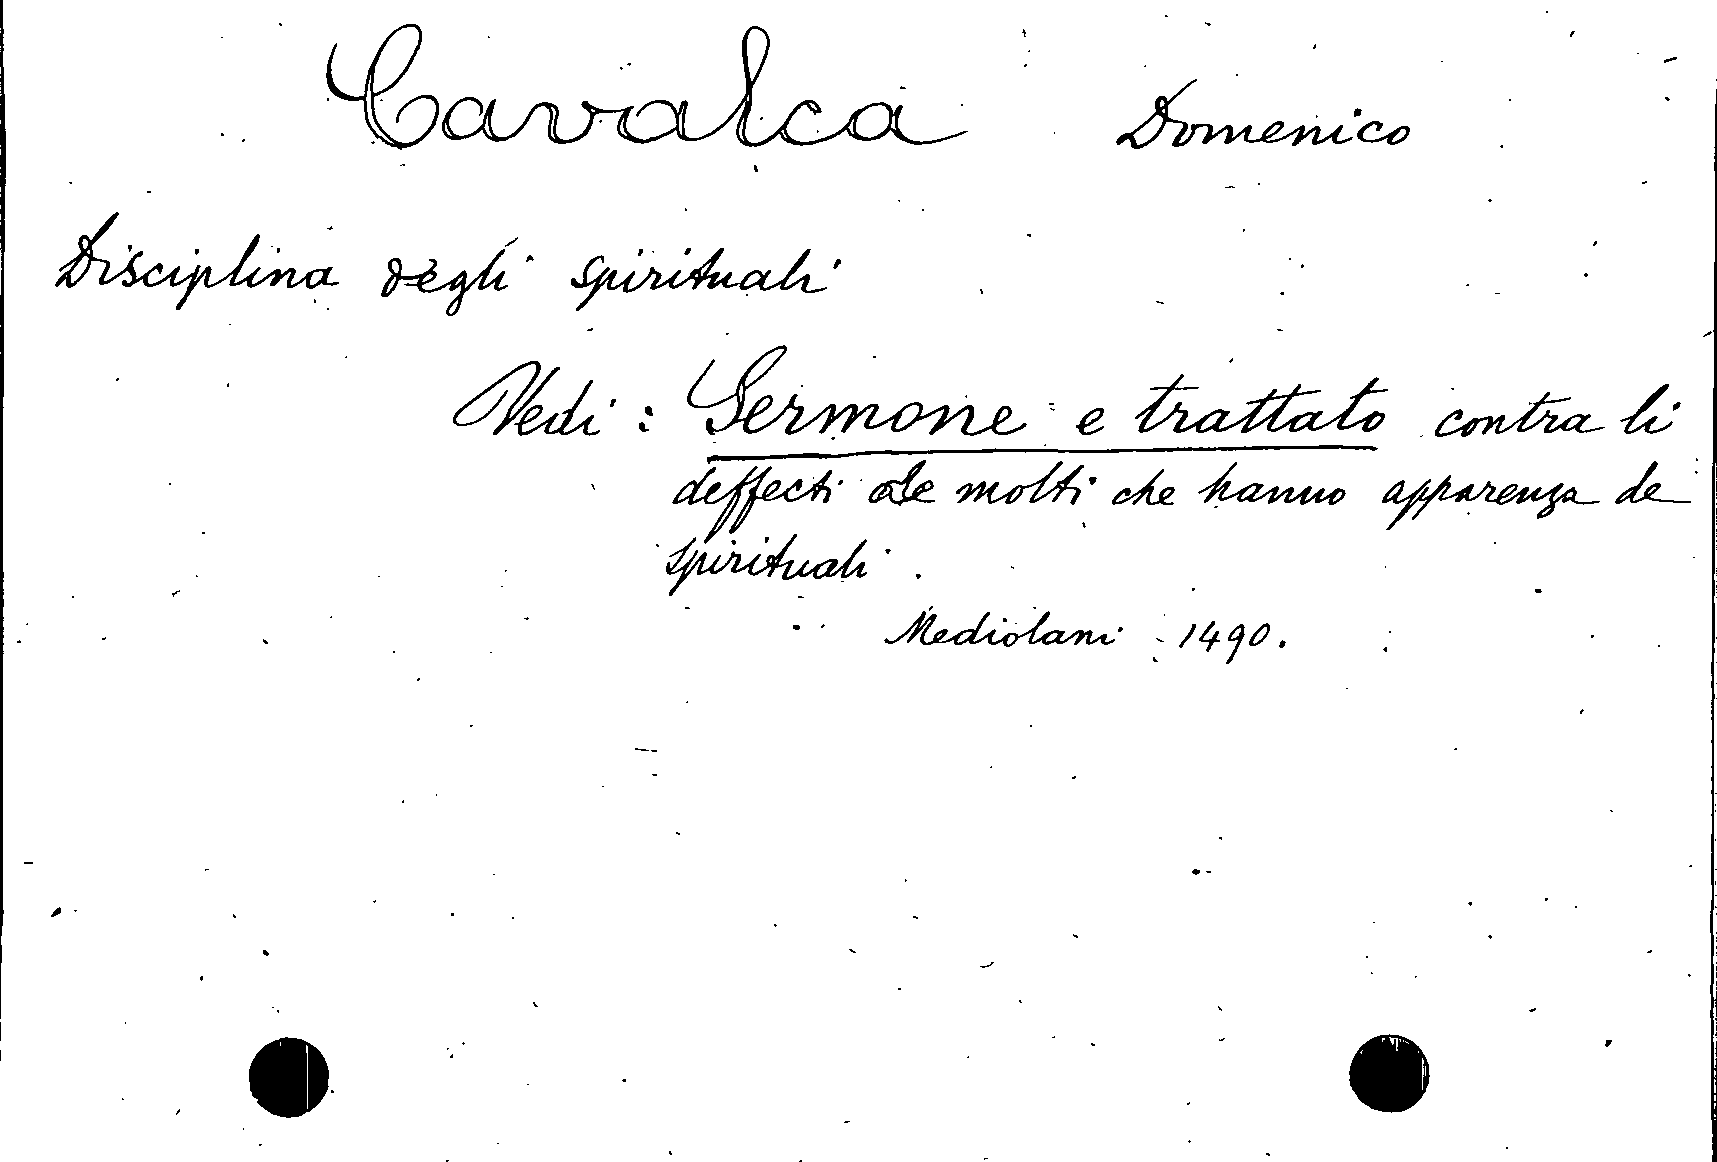 Cavalca Domenico
Disciplina degli spirituali
Vedi : Sermone e trattato contra li
deffecti de molti che hanno apparenza de
spirituali.
Mediolani 1490.